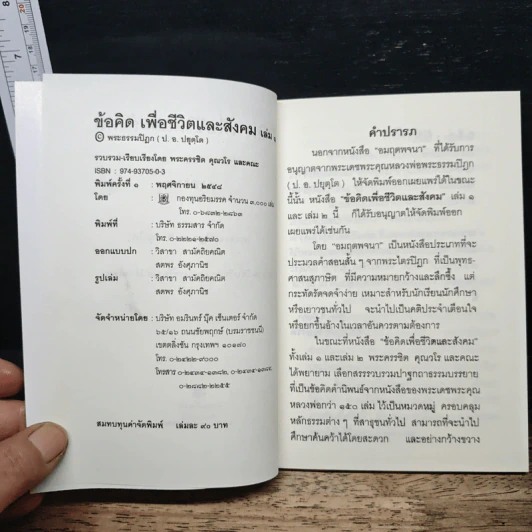 ข้อคิด เพื่อชีวิตและสังคม เล่ม
© พระธรรมปิฎก ( ป. อ. ปยุตฺโต )
รวบรวม-เรียบเรียงโดย พระครรชิต คุณวโร และคณะ
ISBN : 974-93705-0-3
พิมพ์ครั้งที่ ๑ : พฤศจิกายน ๒๕๔๔
โดย : กองทุนอริยมรรค จำนวน ๓,๐๐๐ เล่ม
โทร. ๐-๖๘๓๒-๒๘๖๓
พิมพ์ที่ : บริษัท ธรรมสาร จำกัด
โทร. ๐-๒๒๒๑-๒๕๗๐
ออกแบบปก : วิสาขา สามัคถิยคณิต
สตพร อังศุภานิช
รูปเล่ม : วิสาขา สามัคถิยคณิต
สตพร อังศุภานิช
จัดจำหน่ายโดย : บริษัท อมรินทร์ บุ๊ค เซ็นเตอร์ จำกัด
๖๕/๑๖ ถนนชัยพฤกษ์ (บรมราชชนนี)
เขตตลิ่งชัน กรุงเทพฯ ๑๐๑๗๐
โทร. ๐-๒๔๒๒-๙๐๐๐
โทรสาร ๐-๒๔๓๔-๑๓๘๒, ๐-๒๔๓๔-
๐-๒๘๘๒-๒๒๕๕
สมทบทุนค่าจัดพิมพ์ เล่มละ ๙๐ บาท
คำปรารภ
นอกจากหนังสือ "อมฤตพจนา" ที่ได้รับการ
อนุญาตจากพระเดชพระคุณหลวงพ่อพระธรรมปิฎก
( ป. อ. ปยุตฺโต ) ให้จัดพิมพ์ออกเผยแพร่ได้ในขณะ
นี้นั้น หนังสือ "ข้อคิดเพื่อชีวิตและสังคม" เล่ม ๑
และ เล่ม ๒ นี้ ก็ได้รับอนุญาตให้จัดพิมพ์ออก
เผยแพร่ได้เช่นกัน
โดย "อมฤตพจนา" เป็นหนังสือประเภทที่จะ
ประมวลคำสอนสั้น ๆ จากพระไตรปิฎก ที่เป็นพุทธ-
ศาสนสุภาษิต ที่มีความหมายกว้างและลึกซึ้ง แต่
กระทัดรัดจดจำง่าย เหมาะสำหรับนักเรียนนักศึกษา
หรือเยาวชนทั่วไป จะนำไปเป็นคติประจำเตือนใจ
หรือยกขึ้นอ้างในเวลาอันควรตามต้องการ
ในขณะที่หนังสือ "ข้อคิดเพื่อชีวิตและสังคม"
ทั้งเล่ม ๑ และเล่ม ๒ พระครรชิต คุณวโร และคณะ
ได้พยายาม เลือกสรรรวบรวมปาฐกถาธรรมบรรยาย
ที่เป็นข้อคิดคำนิพนธ์จากหนังสือของพระเดชพระคุณ
หลวงพ่อกว่า ๑๕๐ เล่ม ไว้เป็นหมวดหมู่ ครอบคลุม
หลักธรรมต่าง ๆ ที่สาธุชนทั่วไป สามารถที่จะนำไป
ศึกษาค้นคว้าได้โดยสะดวก และอย่างกว้างขวาง
7
8